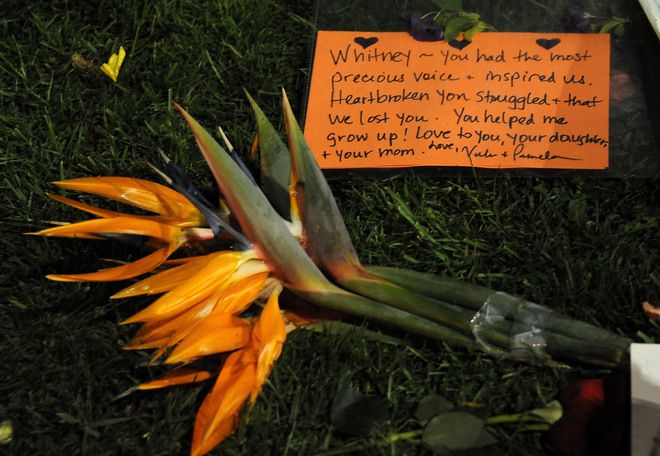 Whitney ~ You had the most
precious voice + inspired us.
Heartbroken you struggled + that
we lost you. You helped me
grow up! Love to you, your daughter,
+ your mom. Love, + Pamela